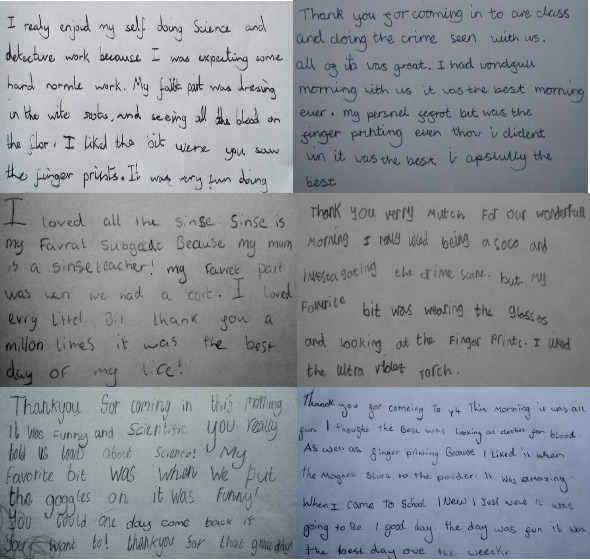 I realy enjoid my self doing Science and
detecture work because I was expecting some
hard normle work. My part was dresing
in the wite and seeing all the blood on
the flor. I liked the bit were you saw
the finger prints. It was very fun doing
Thank you for cooming in to are class
and doing the crime seen with us.
all of it was great. I had wondfull
morning with us it was the best morning
ever. my persnel but was the
finger printing even thov i dident
win it was the best i the
best
I loved all the sinse Sinse is
my Favral Because my mum
is a sinse teacher! my favret part
was wen we had a cort. I loved
evry littel Bit thank you a
millon times it was the best
day of my life!
Thank you verry Mutch For our wonderfull
Morning I really liked being a soco and
the crime scene. but My
Favurite bit was wearing the glasses
and looking at the Finger Prints. I liked
the ultra violet Torch.
Thankyou for coming in this morning
it was Funny and Scientific you really
told us loads about science! My
favorite bit was when we put
the goggles on it was Funny!
You could one day come back if
you want to! thankyou for that great day!
Thanck you for comeing To y4 This Morning it was all
fun I thought the Best was Looking at clothes for blood.
As well as finger printing Because I Liked it when
the Magnet Stuck to the powder. It was amazing.
When I came To School I New I Just it was
going to Be I good day. the day was fun it was
the best day ove the weeke.